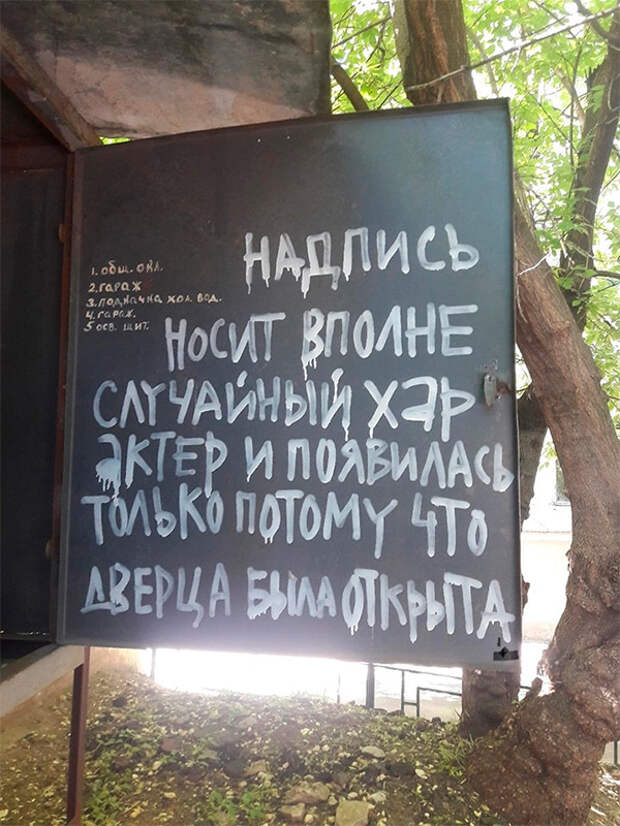 1. общ. окл.
2. гараж
3. подкачка хол. вод.
4. гараж.
5 осв. щит.
НАДПИСЬ
НОСИТ ВПОЛНЕ
СЛУЧАЙНЫЙ ХАР
АКТЕР И ПОЯВИЛАСЬ
ТОЛЬКО ПОТОМУ ЧТО
ДВЕРЦА БЫЛА ОТКРЫТА